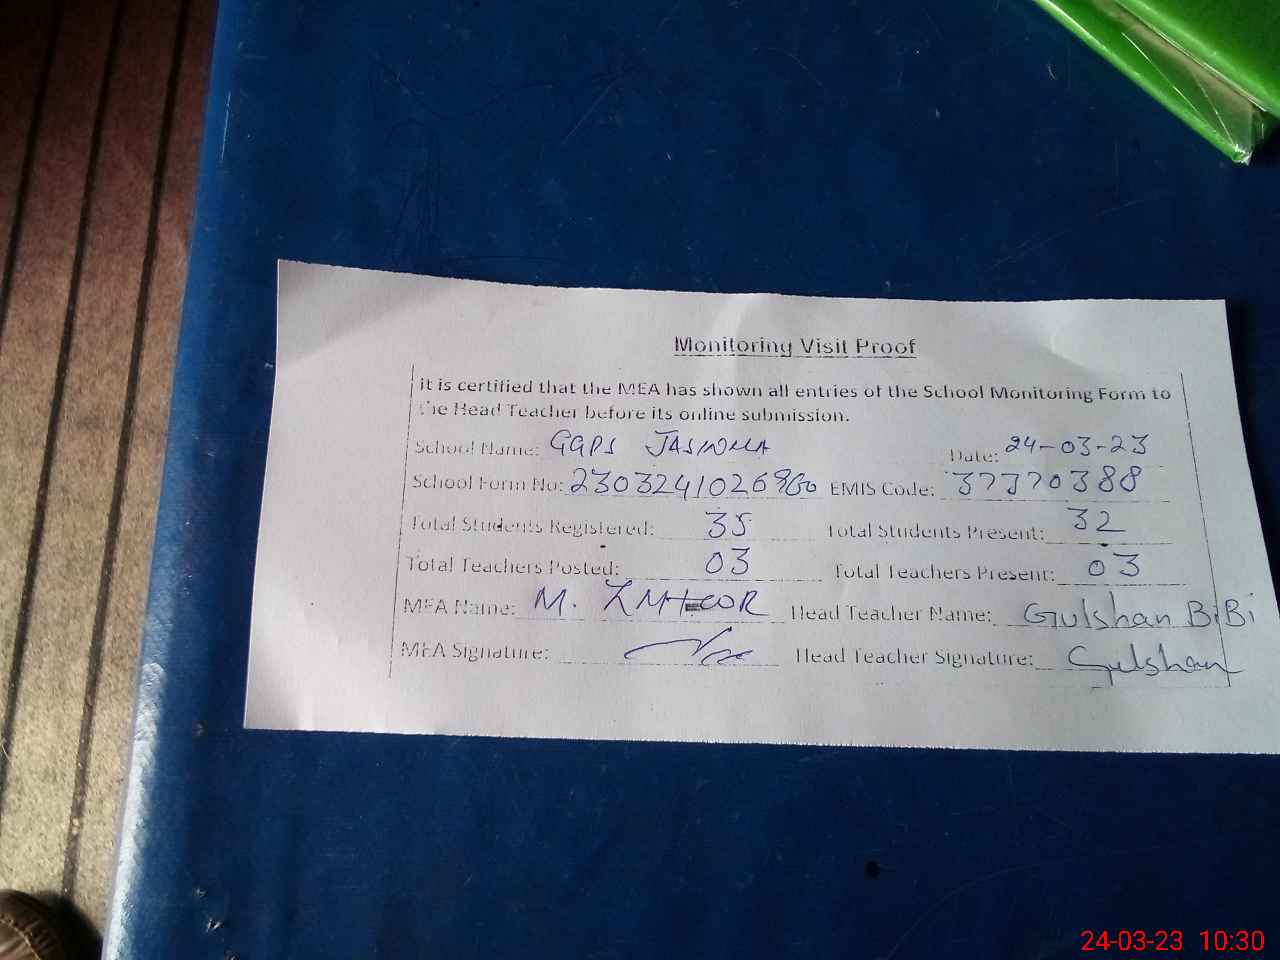 Monitoring Visit Proof
it is certified that the MEA has shown all entries of the School Monitoring Form to
the Head Teacher before its online submission.
School Name: GGPS Date: 24-03-23
School Form No: EMIS Code: 37370388
Total Students Registered: 35 Total Students Present: 32
Total Teachers Posted: 03 Total Teachers Present: 03
MEA Name: M. Head Teacher Name: Gulshan BiBi
MEA Signature: Head Teacher Signature: Gulshan
24-03-23 10:30